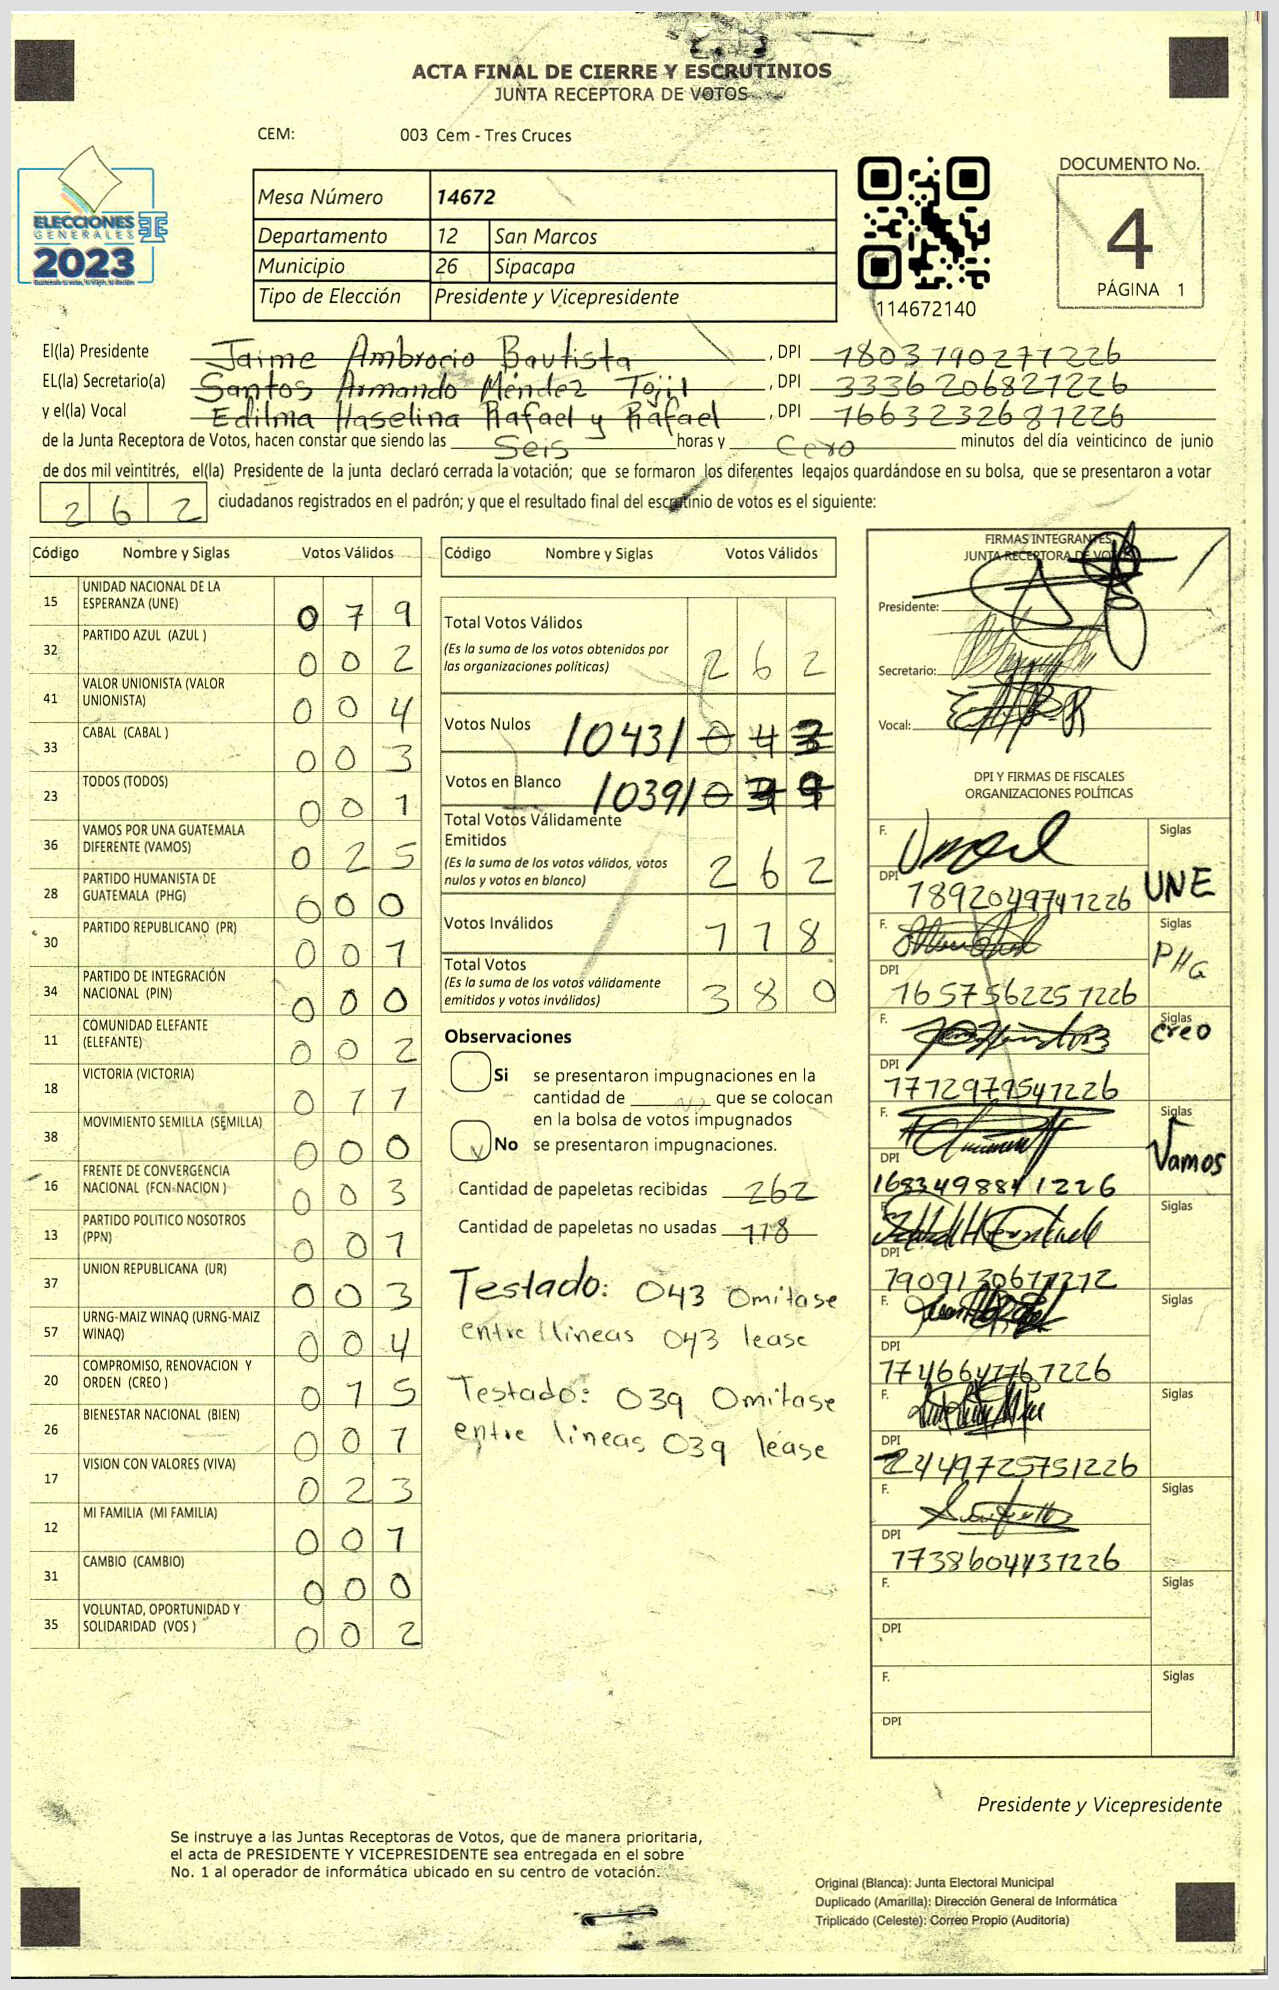 ACTA FINAL DE CIERRE Y ESCRUTINIOS
JUNTA RECEPTORA DE VOTOS
CEM: 003 Cem - Tres Cruces
ELECCIONES
GENERALES
2023
Mesa Número 14672
Departamento 12 San Marcos
Municipio 26 Sipacapa
Tipo de Elección Presidente y Vicepresidente
114672140
DOCUMENTO No.
4
PÁGINA 1
El(la) Presidente Jaime Ambrocio Bautista, DPI 1803190271226
EL(la) Secretario(a) Santos Armando Méndez Tojil, DPI 3336206827226
y el(la) Vocal Edilma Haselina Rafael y Rafael, DPI 1663232687226
de la Junta Receptora de Votos, hacen constar que siendo las Seis horas y Cero minutos del día veinticinco de junio
de dos mil veintitrés, el(la) Presidente de la junta declaró cerrada la votación; que se formaron los diferentes legajos guardándose en su bolsa, que se presentaron a votar
262 ciudadanos registrados en el padrón; y que el resultado final del escrutinio de votos es el siguiente:
Código Nombre y Siglas Votos Válidos
15 UNIDAD NACIONAL DE LA ESPERANZA (UNE) 079
32 PARTIDO AZUL (AZUL ) 002
41 VALOR UNIONISTA (VALOR UNIONISTA) 004
33 CABAL (CABAL ) 003
23 TODOS (TODOS) 001
36 VAMOS POR UNA GUATEMALA DIFERENTE (VAMOS) 025
28 PARTIDO HUMANISTA DE GUATEMALA (PHG) 000
30 PARTIDO REPUBLICANO (PR) 001
34 PARTIDO DE INTEGRACIÓN NACIONAL (PIN) 000
11 COMUNIDAD ELEFANTE (ELEFANTE) 002
18 VICTORIA (VICTORIA) 011
38 MOVIMIENTO SEMILLA (SEMILLA) 000
16 FRENTE DE CONVERGENCIA NACIONAL (FCN-NACION ) 003
13 PARTIDO POLITICO NOSOTROS (PPN) 001
37 UNION REPUBLICANA (UR) 003
57 URNG-MAIZ WINAQ (URNG-MAIZ WINAQ) 004
20 COMPROMISO, RENOVACION Y ORDEN (CREO ) 015
26 BIENESTAR NACIONAL (BIEN) 001
17 VISION CON VALORES (VIVA) 023
12 MI FAMILIA (MI FAMILIA) 001
31 CAMBIO (CAMBIO) 000
35 VOLUNTAD, OPORTUNIDAD Y SOLIDARIDAD (VOS ) 002
Código Nombre y Siglas Votos Válidos
Total Votos Válidos
(Es la suma de los votos obtenidos por
las organizaciones políticas) 262
Votos Nulos /043/ 043
Votos en Blanco /039/ 039
Total Votos Válidamente
Emitidos
(Es la suma de los votos válidos, votos
nulos y votos en blanco) 262
Votos Inválidos 118
Total Votos
(Es la suma de los votos válidamente
emitidos y votos inválidos) 380
Observaciones
Si se presentaron impugnaciones en la
cantidad de que se colocan
en la bolsa de votos impugnados
No se presentaron impugnaciones.
Cantidad de papeletas recibidas 262
Cantidad de papeletas no usadas 118
Testado: 043 Omitase
entre llineas 043 lease
Testado: 039 Omitase
entre lineas 039 léase
FIRMAS INTEGRANTES
JUNTA RECEPTORA DE VOTOS
Presidente:
Secretario:
Vocal:
DPI Y FIRMAS DE FISCALES
ORGANIZACIONES POLÍTICAS
F. Siglas
DPI 1892049741226 UNE
F. Siglas
DPI 1657562257226 PHG
F. Siglas
DPI 1712979547226 Creo
F. Siglas
DPI 1683498841226 Vamos
F. Siglas
DPI
F. Siglas
DPI
F. Siglas
DPI 2449725751226
F. Siglas
DPI 1738604431226
F. Siglas
DPI
F. Siglas
DPI
Presidente y Vicepresidente
Se instruye a las Juntas Receptoras de Votos, que de manera prioritaria,
el acta de PRESIDENTE Y VICEPRESIDENTE sea entregada en el sobre
No. 1 al operador de informática ubicado en su centro de votación.
Original (Blanca): Junta Electoral Municipal
Duplicado (Amarilla): Dirección General de Informática
Triplicado (Celeste): Correo Propio (Auditoría)